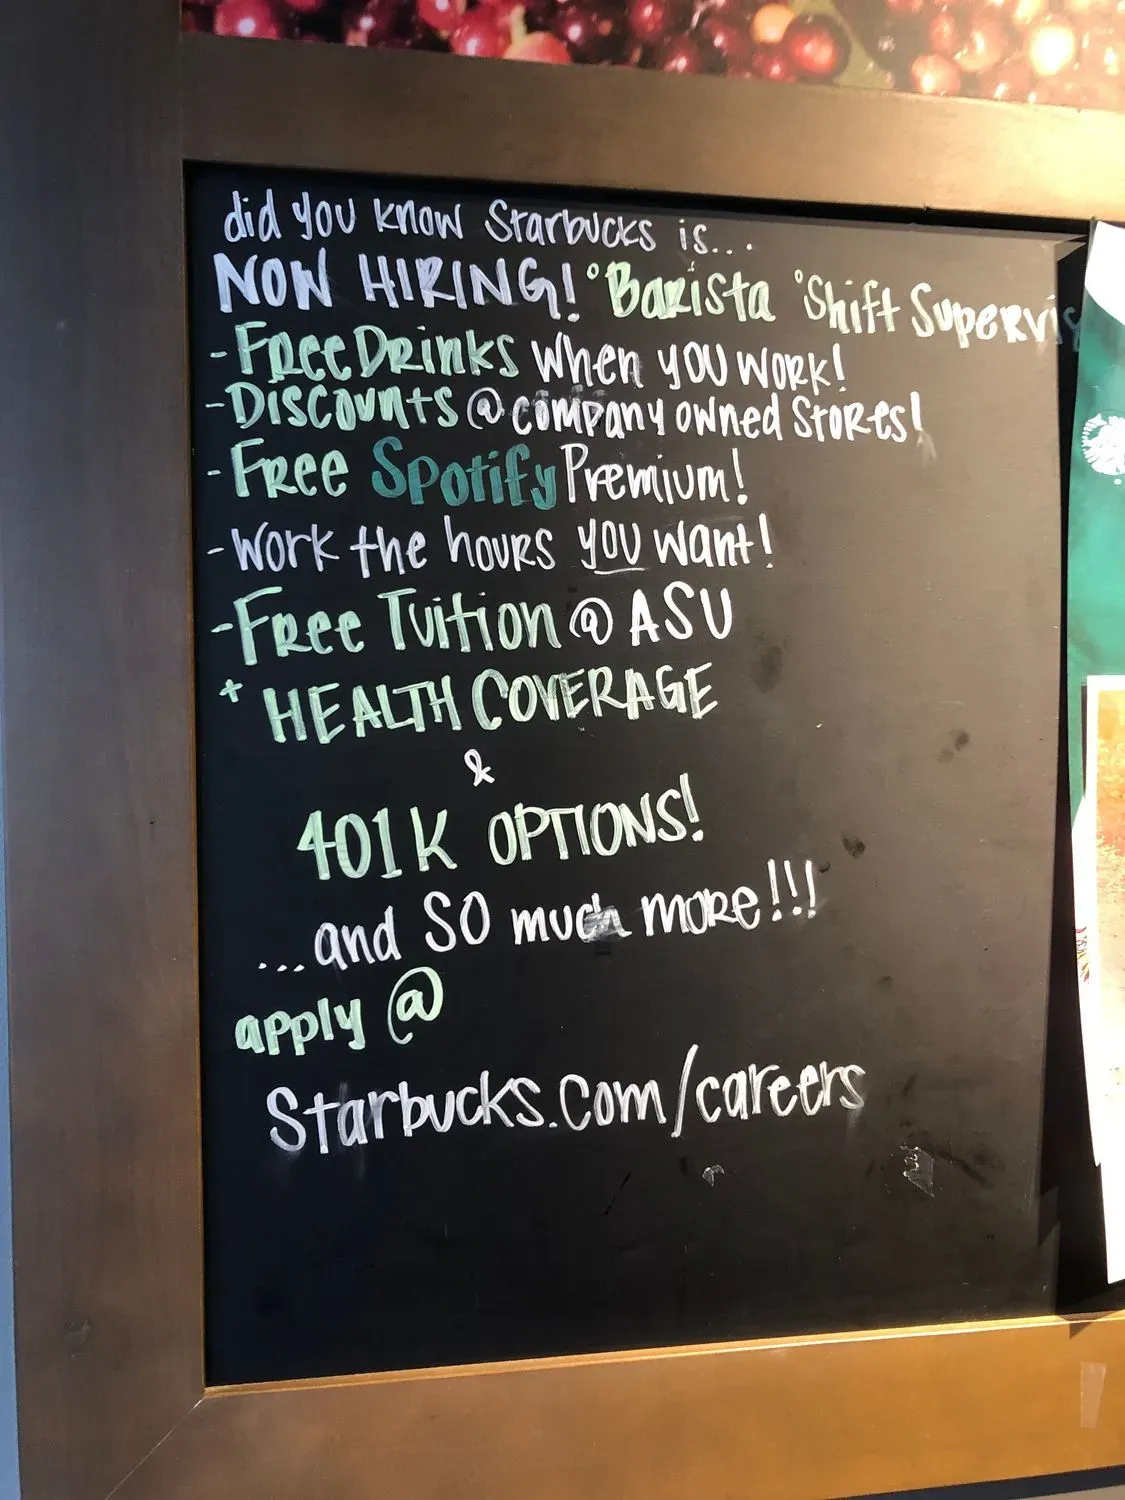 did you know Starbucks is...
NOW HIRING! °Barista °Shift Supervis
- Free Drinks when you work!
- Discounts @ company owned stores!
- Free Spotify Premium!
- Work the hours you want!
- Free Tuition @ ASU
+ HEALTH COVERAGE
&
401K OPTIONS!
...and SO much more!!!
apply @
Starbucks.com/careers